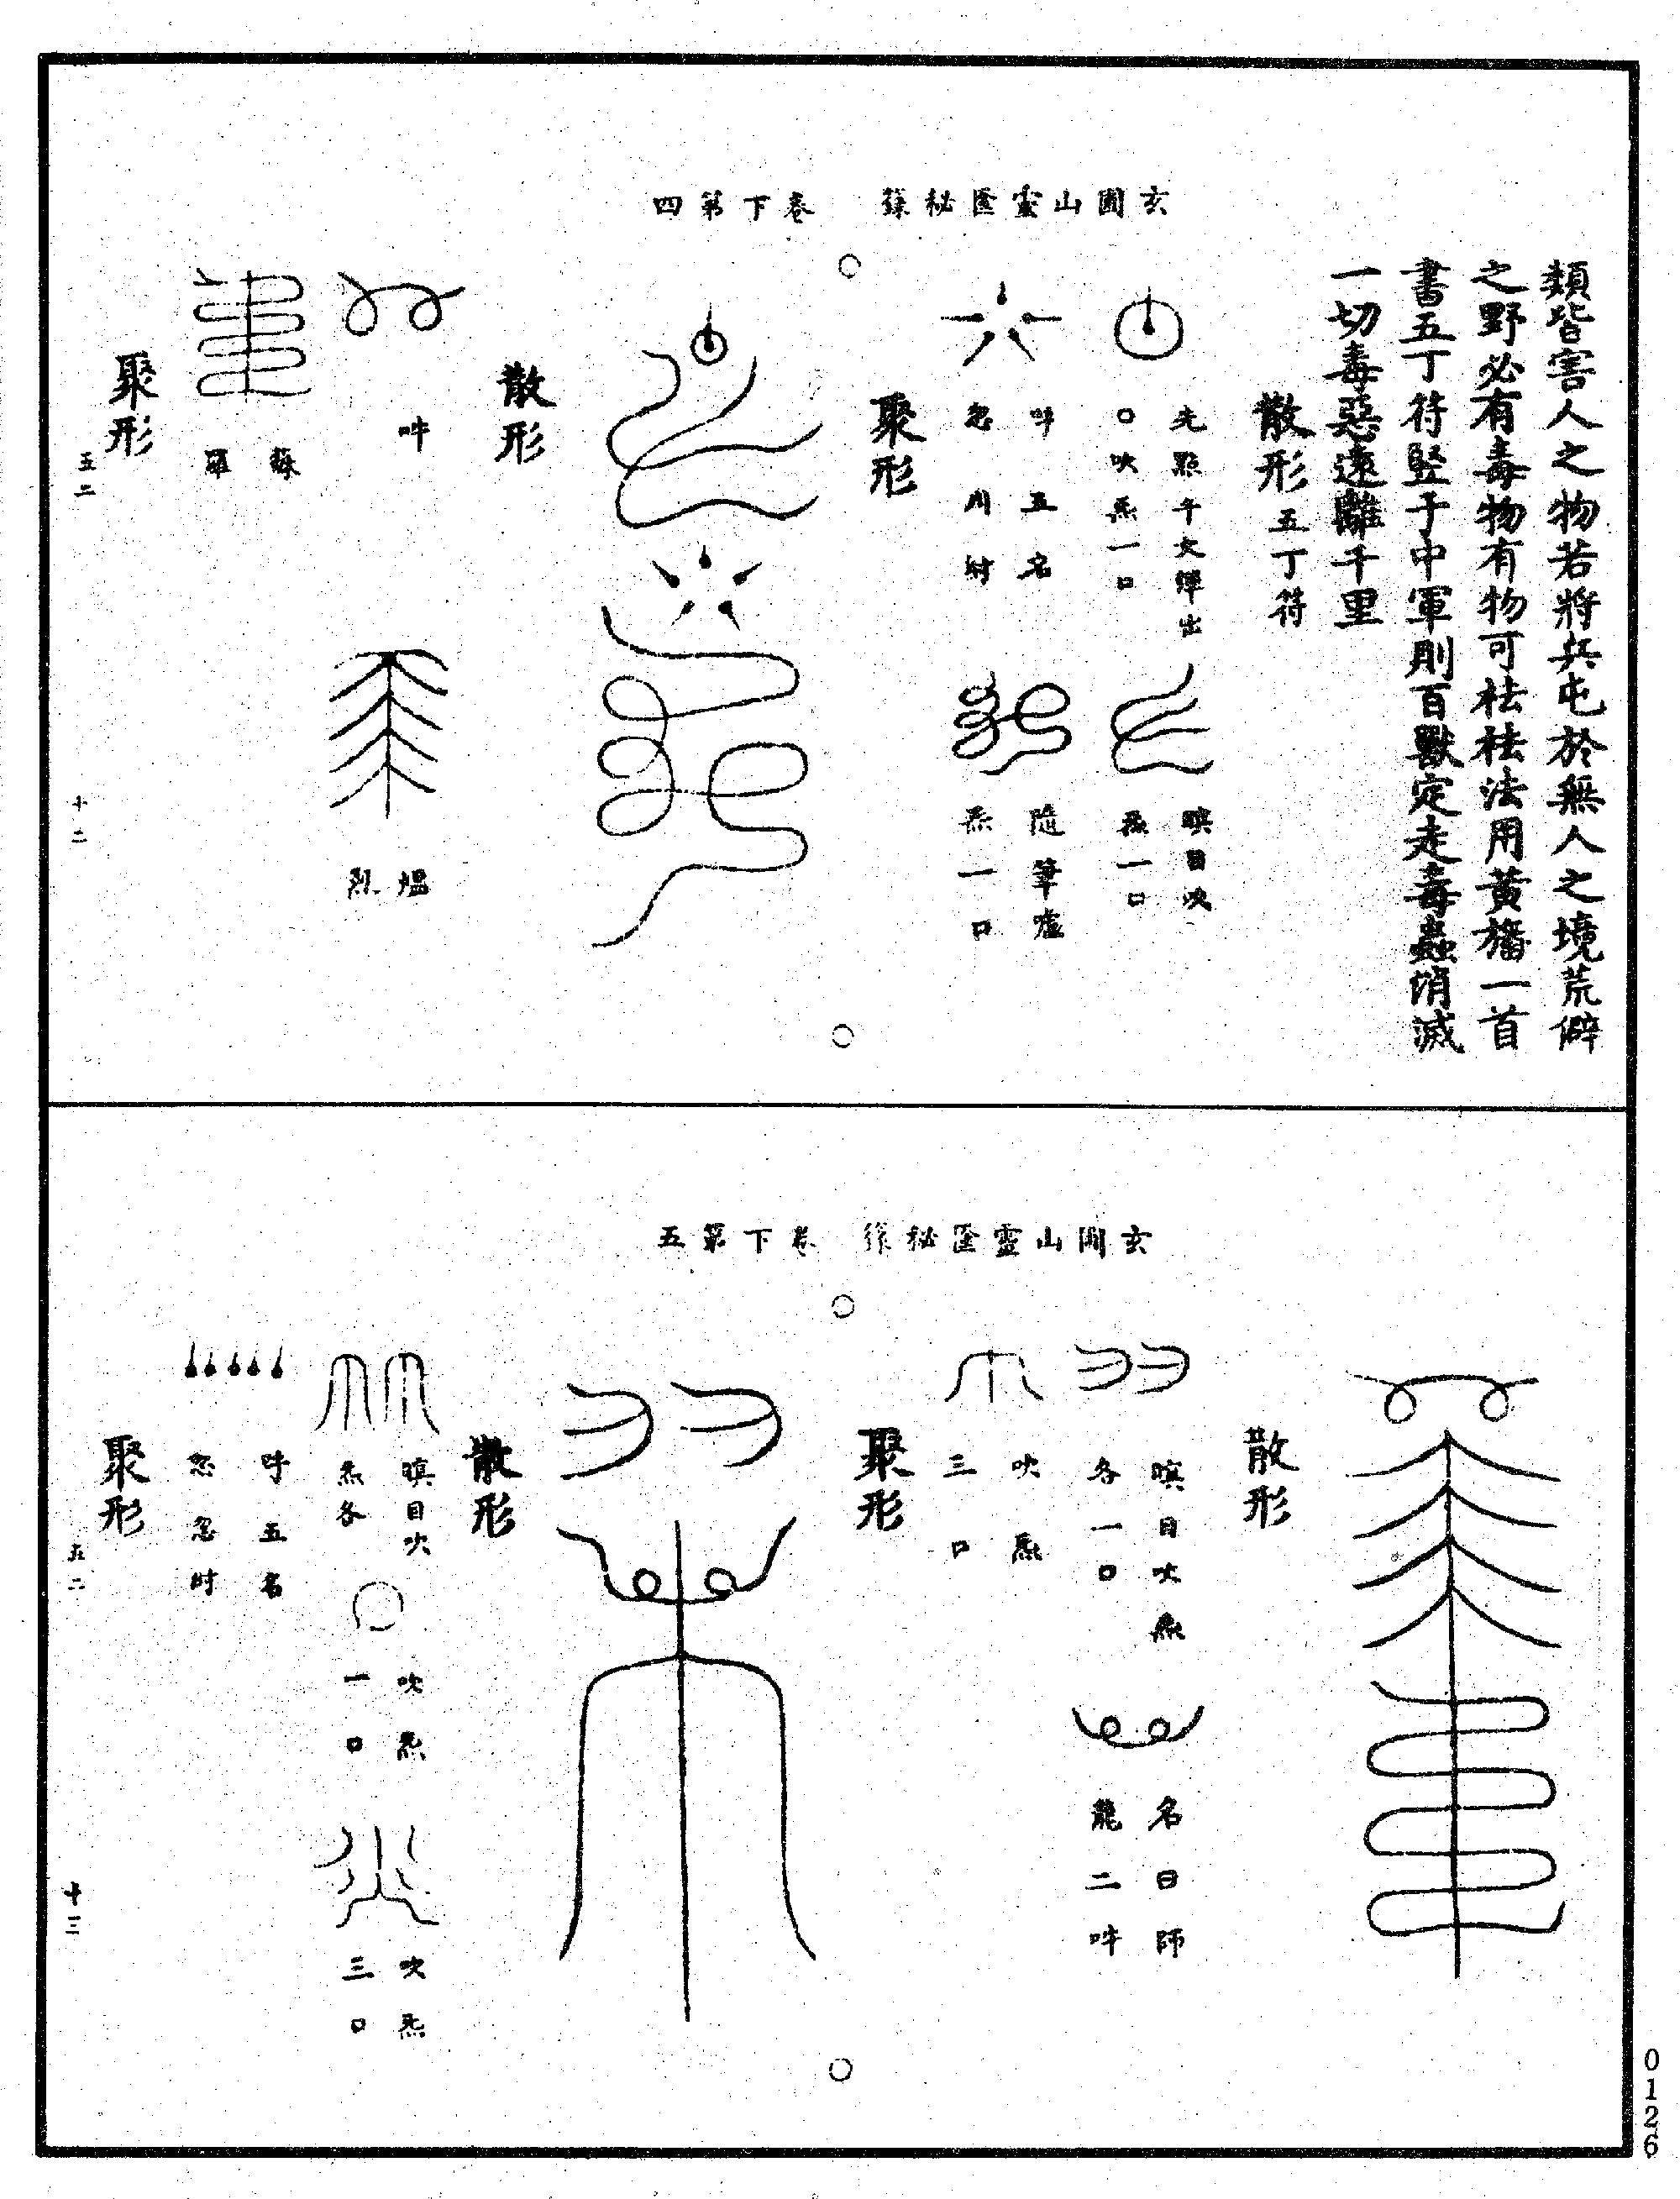 玄圃山靈匱秘籙　卷下第四
類皆害人之物若將兵屯於無人之境荒僻
之野必有毒物有物可祛祛法用黃旛一首
書五丁符竪于中軍則百獸定走毒蟲消滅
一切毒惡遠離千里
散形五丁符
先點午文彈出
口吹炁一口
瞑目吹
炁一口
吽五名
忽用時
隨筆嘘
炁一口
聚形
散形
吽
熅
烈
蘇
羅
聚形
五二
十二
玄圃山靈匱秘籙　卷下第五
散形
瞑目吹炁
各一口
名曰師
龍二吽
吹炁
三口
聚形
散形
瞑目吹
炁各
吹炁
一口
吹炁
三口
吽五名
忽忽時
聚形
五二
十三
0126